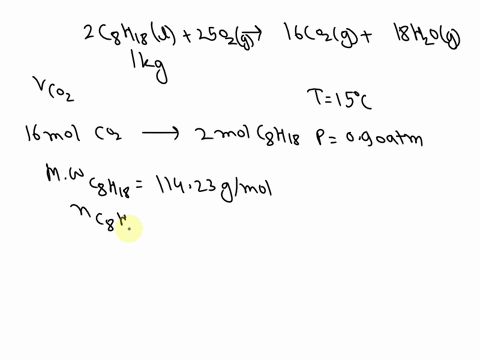 2C8H18(l) + 25O2(g) → 16CO2(g) + 18H2O(g)
1kg
VCO2
T=15°C
16mol CO2 → 2molC8H18 P= 0.90atm
M.W C8H18 = 114.23g/mol
nC8H